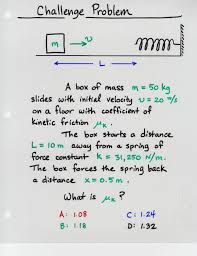 Challenge Problem
m → v
L
A box of mass m = 50 kg
slides with initial velocity v = 20 m/s
on a floor with coefficient of
kinetic friction μk.
The box starts a distance
L = 10 m away from a spring of
force constant k = 31,250 N/m.
The box forces the spring back
a distance x = 0.5 m.
What is μk?
A: 1.08 C: 1.24
B: 1.18 D: 1.32